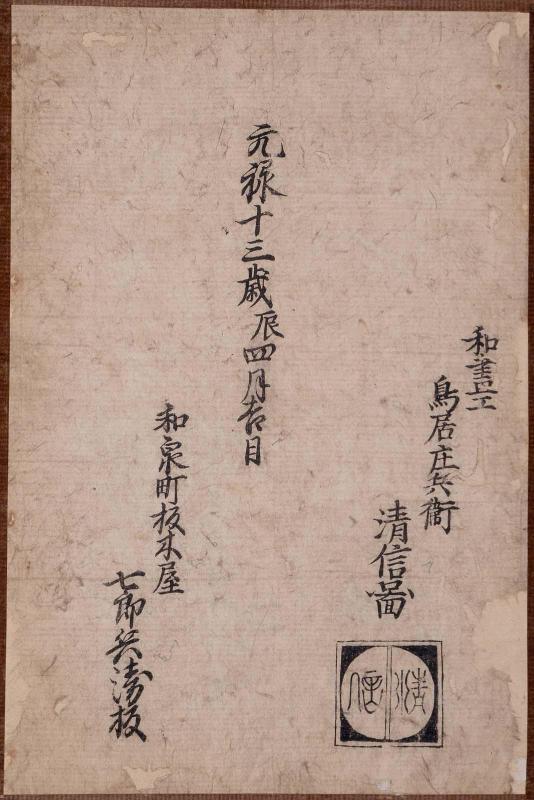 和畫工
鳥居庄兵衞
清信圖
清信
元禄十三歳辰四月吉日
和泉町板木屋
七郎兵衛板